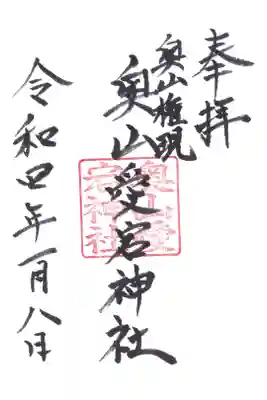 奉拝
奥山権現
奥山愛宕神社
奥山愛
宕神社
令和四年一月八日